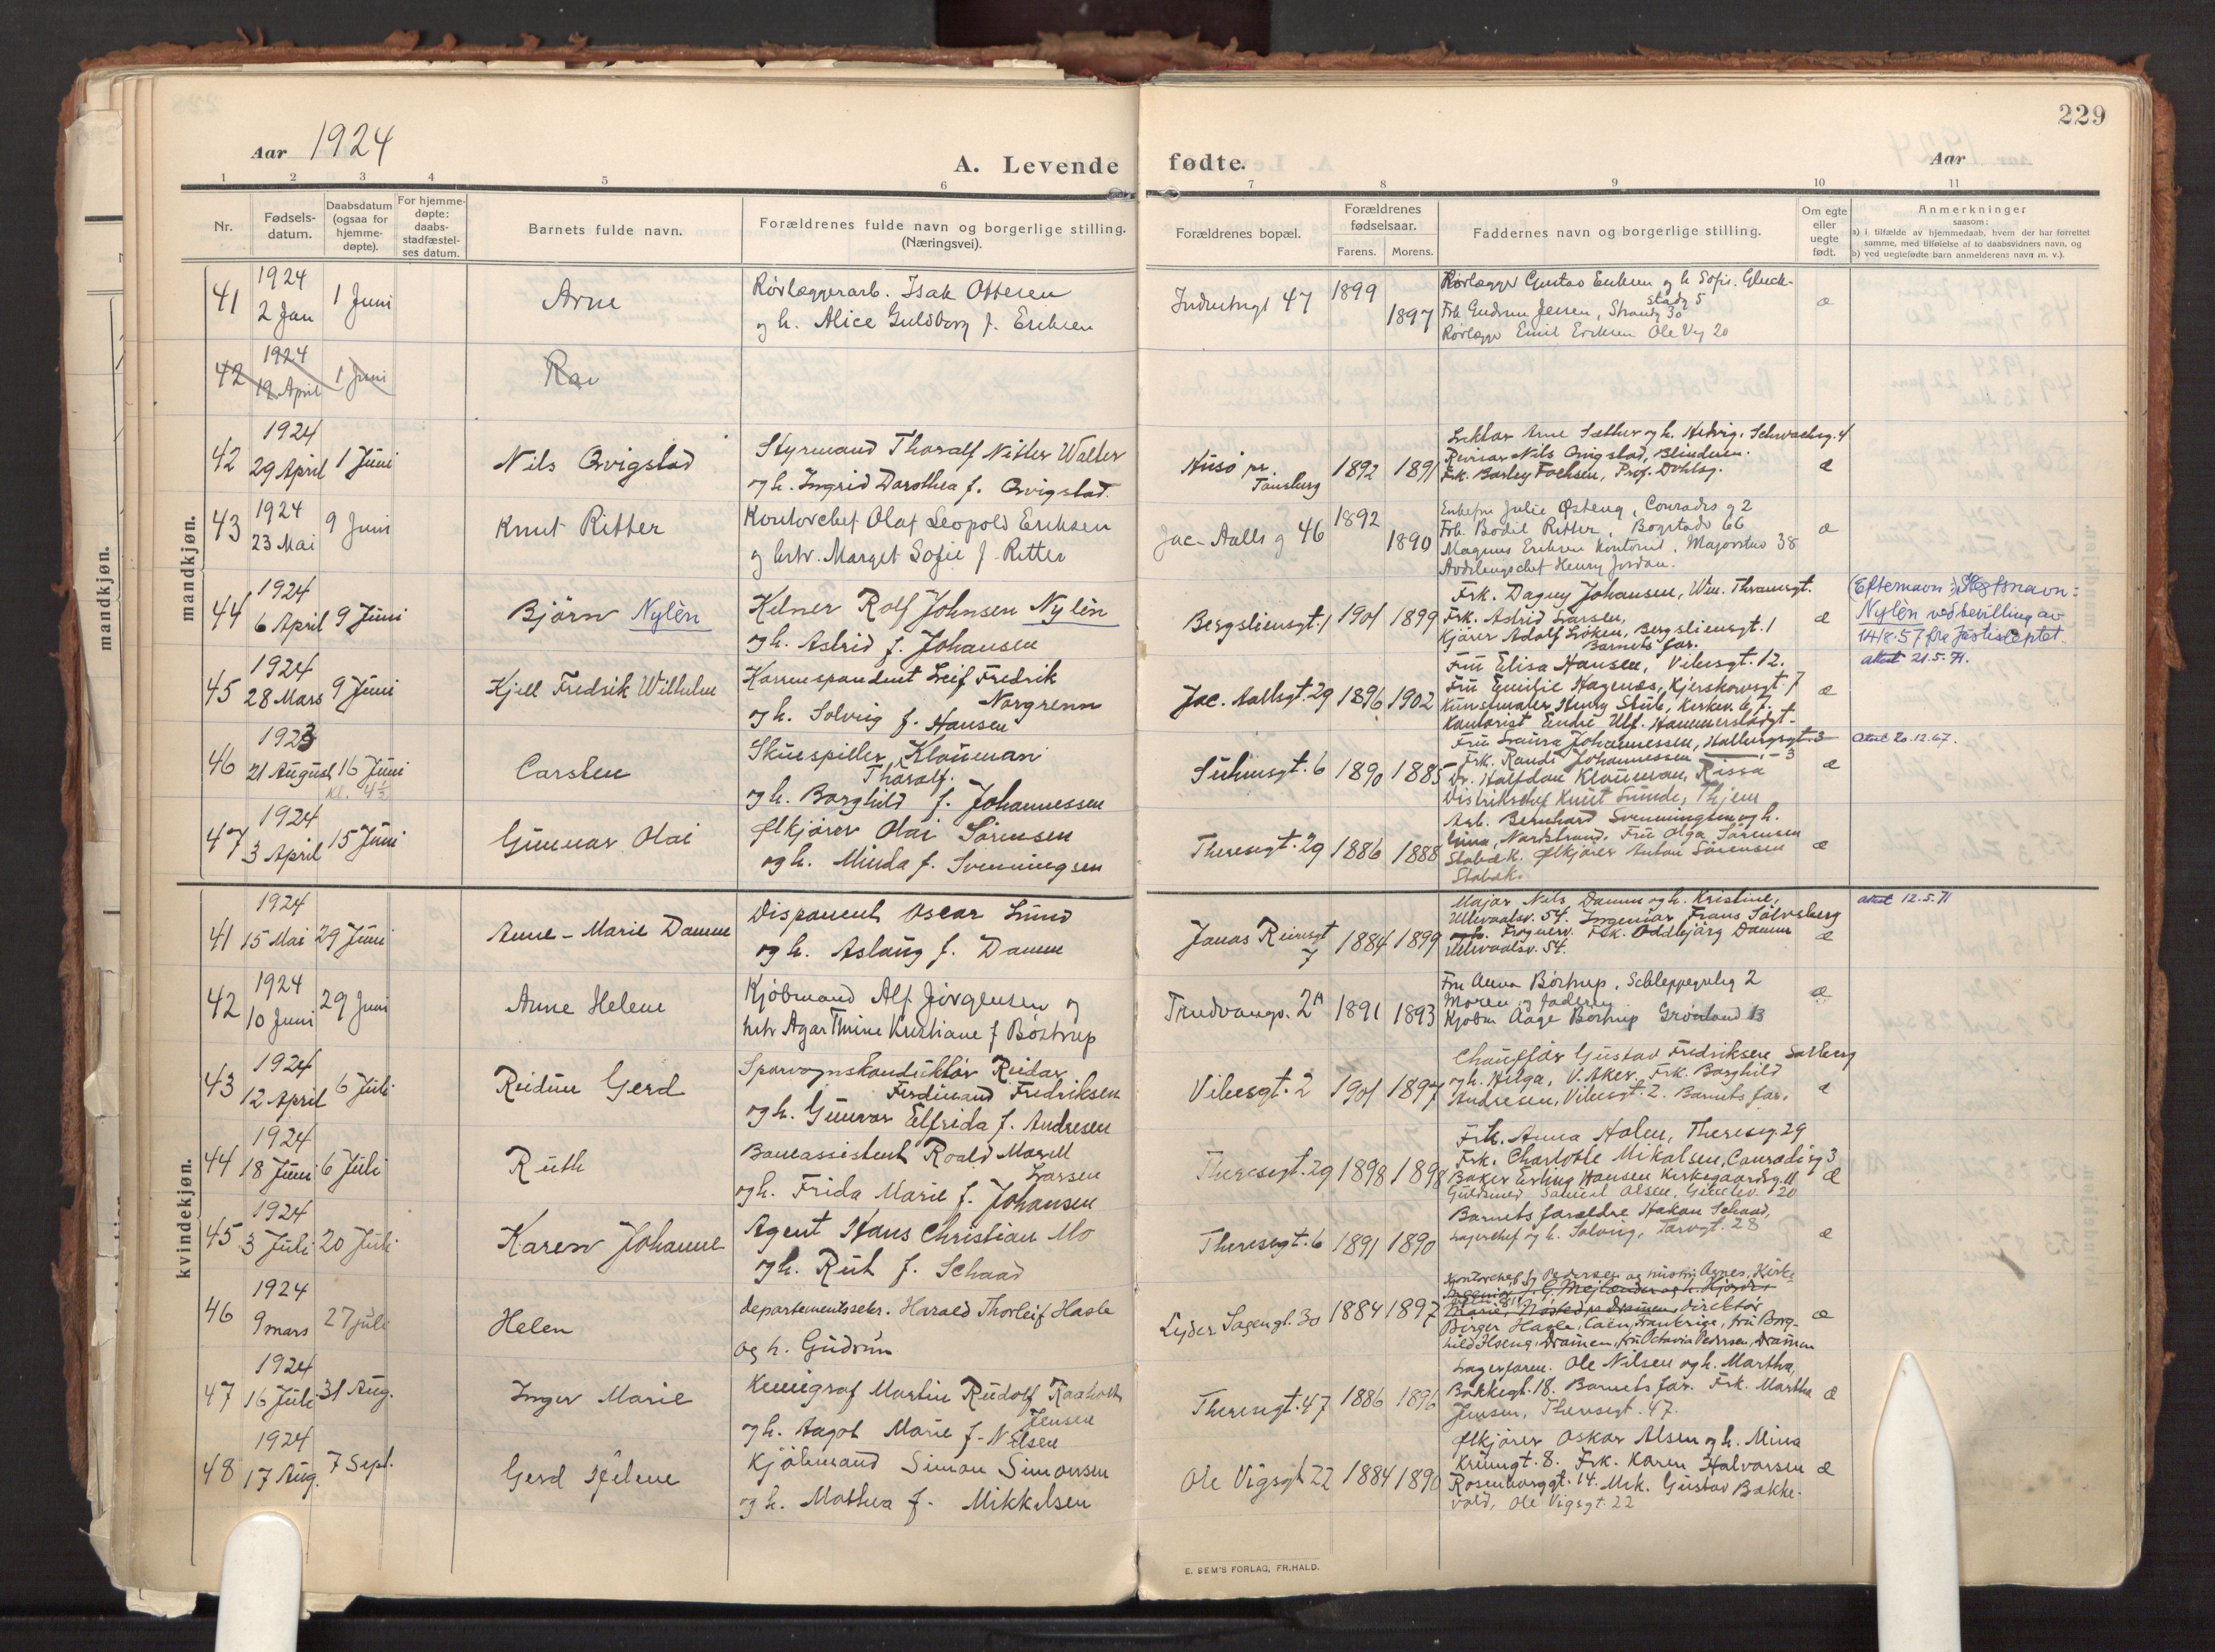 229
Aar 1924
A. Levende fødte.
Aar
1 2 3 4 5 6 7 8 9 10 11
Nr.
Fødsels-
datum.
Daabsdatum
(ogsaa for
hjemme-
døpte).
For hjemme-
døpte:
daabs-
stadfæstel-
ses datum.
Barnets fulde navn.
Forældrenes fulde navn og borgerlige stilling.
(Næringsvei).
Forældrenes bopæl.
Forældrenes
fødselsaar.
Farens. Morens.
Faddernes navn og borgerlige stilling.
Om egte
eller
uegte
født.
Anmerkninger
saasom:
a) i tilfælde av hjemmedaab, hvem der har forrettet
samme, med tilføielse af to daabsvidners navn, og
b) ved uegtefødte barn anmelderens navn m. v.).
mandkjøn.
mandkjøn.
41 1924 2 Jan 1 Juni
Arne
Rørlæggerarb. Isak Ottesen
og h. Alice Guldborg f. Eriksen
47 1899 1897
Rørlægger Gustav Eriksen og h. Sofie. Gluck-
stadg 5
Frk. Gudrun Jensen, Strandg 30
Rørlægger Emil Eriksen Ole Vig 20
42 1924 19 April 1 Juni
42 1924 29 April 1 Juni
Nils Qvigstad
Styrmand Thoralf Nitter Walter
og h. Ingrid Dorothea f. Qvigstad.
Husö pr.
Tønsberg
1892 1891
Lektor Arne Sæther og h. Hedvig. Schwachsg. 4
Revisor Nils Qvigstad, Blindern.
Frk. Prof. Dahlsg. æ
43 1924 23 Mai 9 Juni
Knut Ritter
Kontorchef Olaf Leopold Eriksen
og hstr. Margit Sofie f. Ritter
Jac. Aalls g 46 1892 1890
Enkefru Julie Østeng, Conradis g 2
Frk. Bodil Ritter, Bogstadv 66
Magnus Eriksen Kontorist, Majorstuv 38
Avdelingschef Henry Jordan.
44 1924 6 April 9 Juni
Björn Nylèn
Kelner Rolf Johnsen Nylèn
og h. Astrid f. Johansen
Bergsliensgt. 1 1901 1899
Frk. Dagny Johansen, Wm. Thranesgt.
Frk. Astrid Larsen,
Kjører Adolf Löken, Bergsliensgt. 1
Barnets far. æ
Nylèn ved bevilling av
14/8.57 fra Justisdeptet
attest 21.5.71.
45 1924 28 Mars 9 Juni
Kjell Fredrik Wilhelm
Korrespondent Leif Fredrik
Norgrenn
og h. Solveig f. Hansen
Jac. Aallsgt. 29 1896 1902
Fru Elisa Hansen, Vibesgt. 12.
Fru Emilie Hagenæs, Kjerskowsgt. 7
Kunstmaler Henry Kirkev. 67.
Kontorist Endre Ulf. Hammerstadgt. æ
46 1923 21 August 16 Juni
Kl. 4½
Carsten
Skuespiller Klouman
Thoralf.
og h. Borghild f. Johannessen
Suhmsgt. 6 1890 1885
Fru Laura Johannessen, Hallingsgt. 3
Frk. Randi Johannessen —,— 3
Dr. Halfdan Klouman, Rissa
Distriktschef Knut Sunde, Thjem æ
attest 20.12.67.
47 1924 3 April 15 Juni
Gunnar Olai
Ølkjører Olai Sörensen
og h. Minda f. Svenningsen
Theresgt. 29 1886 1888
Arb. Bernhard Svenningsen og h.
Lina, Nordstrand. Fru Olga Sörensen
Stabæk. Ølkjører Anton Sörensen
Stabæk. æ
kvindekjøn.
41 1924 15 Mai 29 Juni
Anne-Marie Damm
Disponent Oscar Lund
og h. Aslaug f. Damm
Jonas Reinsgt
7 1884 1899
Major Nils Damm og h. Kristine,
Ullevaalsv. 54. Ingeniør Frans Sölvsberg
Frognerv. Frk. Oddbjörg Damm
Ullevaalsv. 54. æ
attest 12.5.71
42 1924 10 Juni 29 Juni
Anne Helene
Kjöbmand Alf Jörgensen og
hstr Agar Thrine Kristiane f Böstrup
Trudvangv. 2A 1891 1893
Fru Anna Böstrup, Schleppegrelsg 2
Moren og faderen
Kjöbm Aage Böstrup Grönland 13 æ
43 1924 12 April 6 Juli
Reidun Gerd
Sporvognskonduktör Reidar
Ferdinand Fredriksen
og h. Gunvor Elfrida f. Andresen
Vibesgt. 2 1901 1897
Chaufför Gustav Fredriksen
og h. Helga, V. Aker. Frk. Borghild
Andresen, Vibesgt. 2. Barnets far. æ
44 1924 18 Juni 6 Juli
Ruth
Bankassistent Roald
Larsen
og h. Frida Marie f. Johansen
Theresegt. 29 1898 1898
Frk. Anna Holen, Theresg. 29
Frk. Charlotte Mikalsen, Conradi g 3
Baker Erling Hansen Kirkegaardsg. 11
Guldsmed Samuel Olsen, 20 æ
45 1924 3 Juli 20 Juli
Karen Johanne
Agent Hans Christian Mo
og h. Rut f. Schaad
Theresegt. 6 1891 1890
Barnets forældre Hakon Schaad,
Lagerchef og h. Solveig, Torvgt. 28 æ
46 1924 9 mars 27 juli
Helen
departementssekr. Harald Thorleif Hasle
og h. Gudrun
Lyder Sagensgt. 30 1884 1897
direktør
Birger Hasle, Caen, Frankrige, fru Borg-
hild Hseng, Drammen, fru Octavia Pedersen, Drammen æ
47 1924 16 Juli 31 Aug.
Inger Marie
Kemigraf Martin Rudolf
Jensen
og h. Aagot Marie f. Nilsen
Theresegt. 47 1886 1896
Lagerform. Ole Nilsen og h. Martha,
Bakkegt. 18. Barnets far. Frk. Martha
Jensen, Theresegt. 47. æ
48 1924 17 Aug. 7 Sept.
Gerd Helene
Kjöbmand Simon Simonsen
og h. Mathea f. Mikkelsen
Ole Vigsgt 22 1884 1890
Ølkjører Oskar Olsen og h. Mina
8. Frk. Karen Halvorsen
Rosenborggt. 14. Mek. Gustav Bakke-
vold, Ole Vigsgt. 22 æ
E. SEM'S FORLAG, FR.HALD.